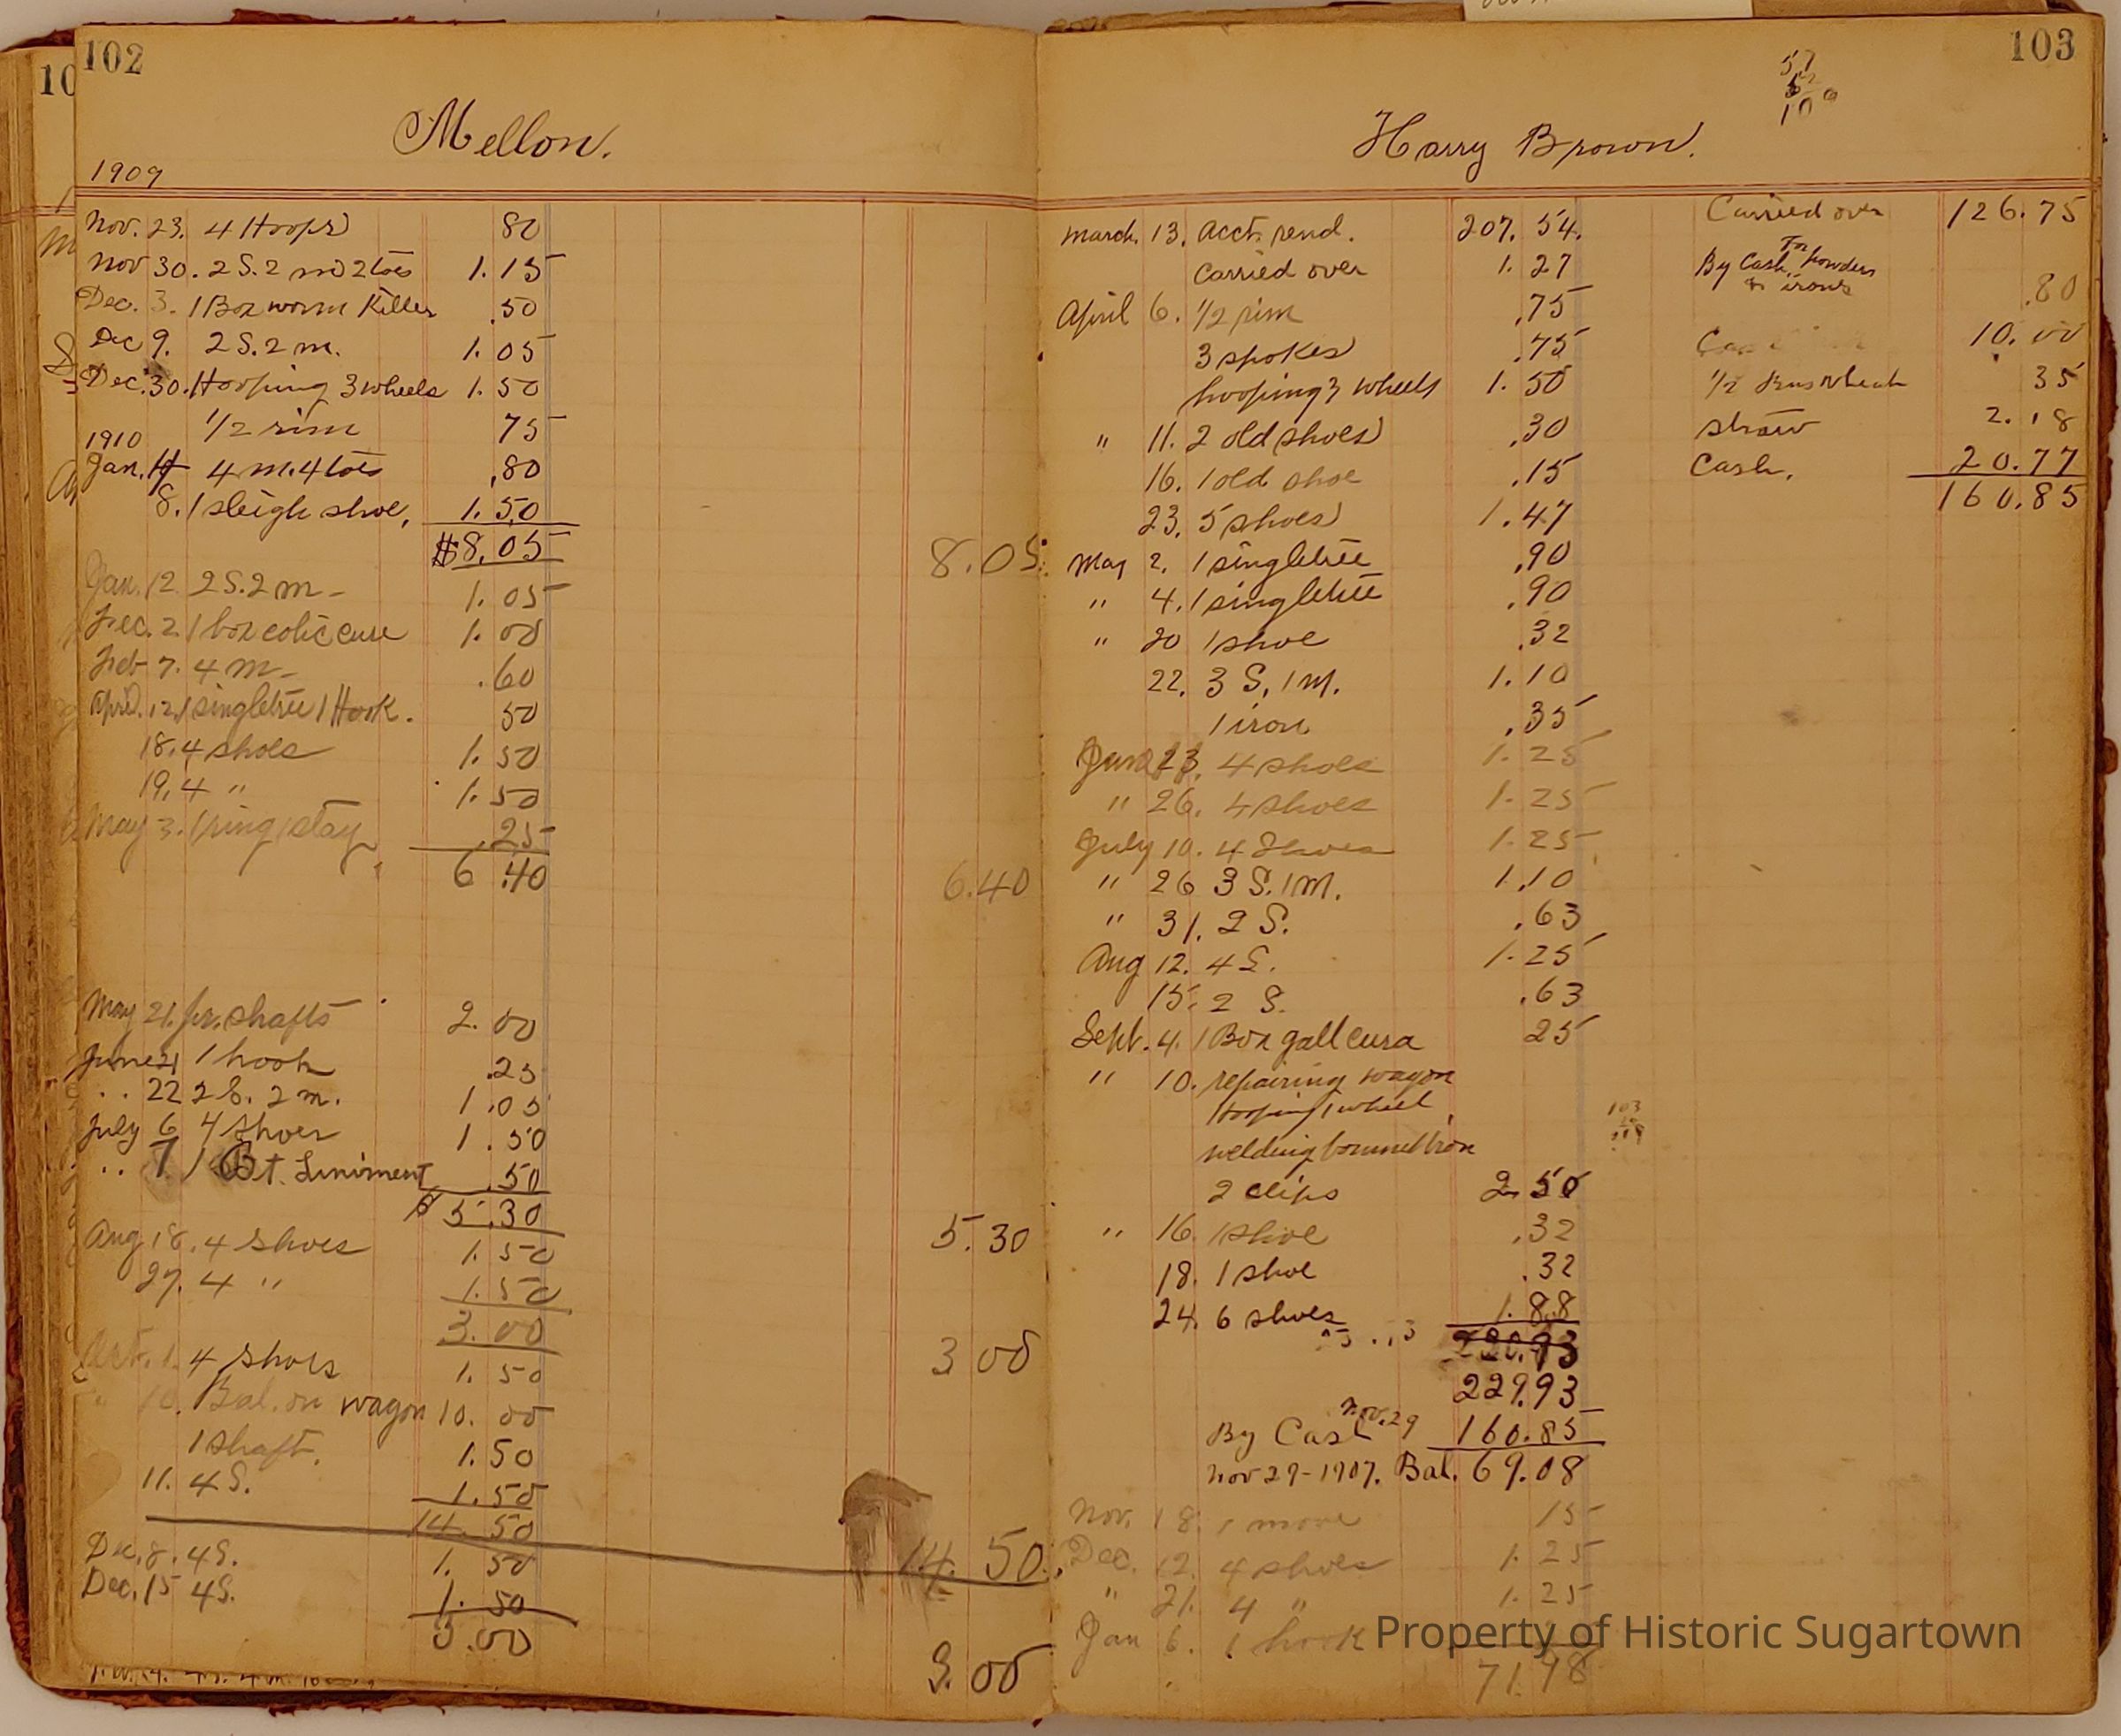 102
Mellon.
1909
Nov. 23. 4 Hoops 80
Nov 30. 2 S. 2 m 2 toes 1.15
Dec. 3. 1 Box worm Killer .50
Dec 9. 2 S. 2 m. 1.05
Dec. 30. Hooping 3 wheels 1.50
1/2 rim 75
1910
Jan. 4 4 m. 4 toes .80
8. 1 sleigh shoe, 1.50
$8.05 8.05
Jan. 12 2 S. 2 m - 1.05
Fec. 2 1 box colic cure 1.00
Feb 7. 4 m - .60
April. 12, 1 singletree 1 Hook. 50
18. 4 shoes 1.50
19, 4 " 1.50
May 3. 1 ring 1 stay .25
6.40 6.40
May 21. pr. shafts 2.00
June 21 1 hook .25
.. 22 2 S. 2 m. 1.05
July 6 4 Shoes 1.50
.. 7 1 Bt. Liniment .50
$ 5.30 5.30
Aug 18. 4 shoes 1.50
27. 4 " 1.50
3.00 3 00
Oct. 1. 4 shoes 1.50
" 10. Bal. on wagon 10.00
1 shaft. 1.50
11. 4 S. 1.50
14.50 14.50
Dec. 8. 4 S. 1.50
Dec. 15 4 S. 1.50
3.00 3.00
103
57
10
Harry Brown.
March. 13. Acct. rend. 207.54.
Carried over 1.27
April 6. 1/2 rim .75
3 spokes .75
hooping 3 wheels 1.50
" 11. 2 old shoes .30
16. 1 old shoe .15
23. 5 shoes 1.47
May 2. 1 singletree .90
" 4. 1 singletree .90
" 20 1 shoe .32
22. 3 S, 1 m. 1.10
1 iron .35
June 23. 4 shoes 1.25
" 26. 4 shoes 1.25
July 10. 4 Shoes 1.25
" 26 3 S. 1 m. 1.10
" 31. 2 S. .63
Aug 12. 4 S. 1.25
15. 2 S. .63
Sept. 4. 1 Box gall cura 25
" 10. repairing wagon
Hooping 1 wheel,
welding iron
2 clips 2.50
" 16. 1 shoe .32
18. 1 shoe .32
24. 6 shoes 1.88
229.93
By Cash Nov. 29 160.85
Nov 29-1907. Bal. 69.08
Nov. 18. 1 move 15
Dec. 12. 4 shoes 1.25
" 21. 4 " 1.25
Jan 6. 1 hook
71.98
Carried over 126.75
By Cash, for powders
& irons .80
10.00
1/2 Bus Wheat 35
straw 2.18
Cash. 20.77
160.85
103
Property of Historic Sugartown